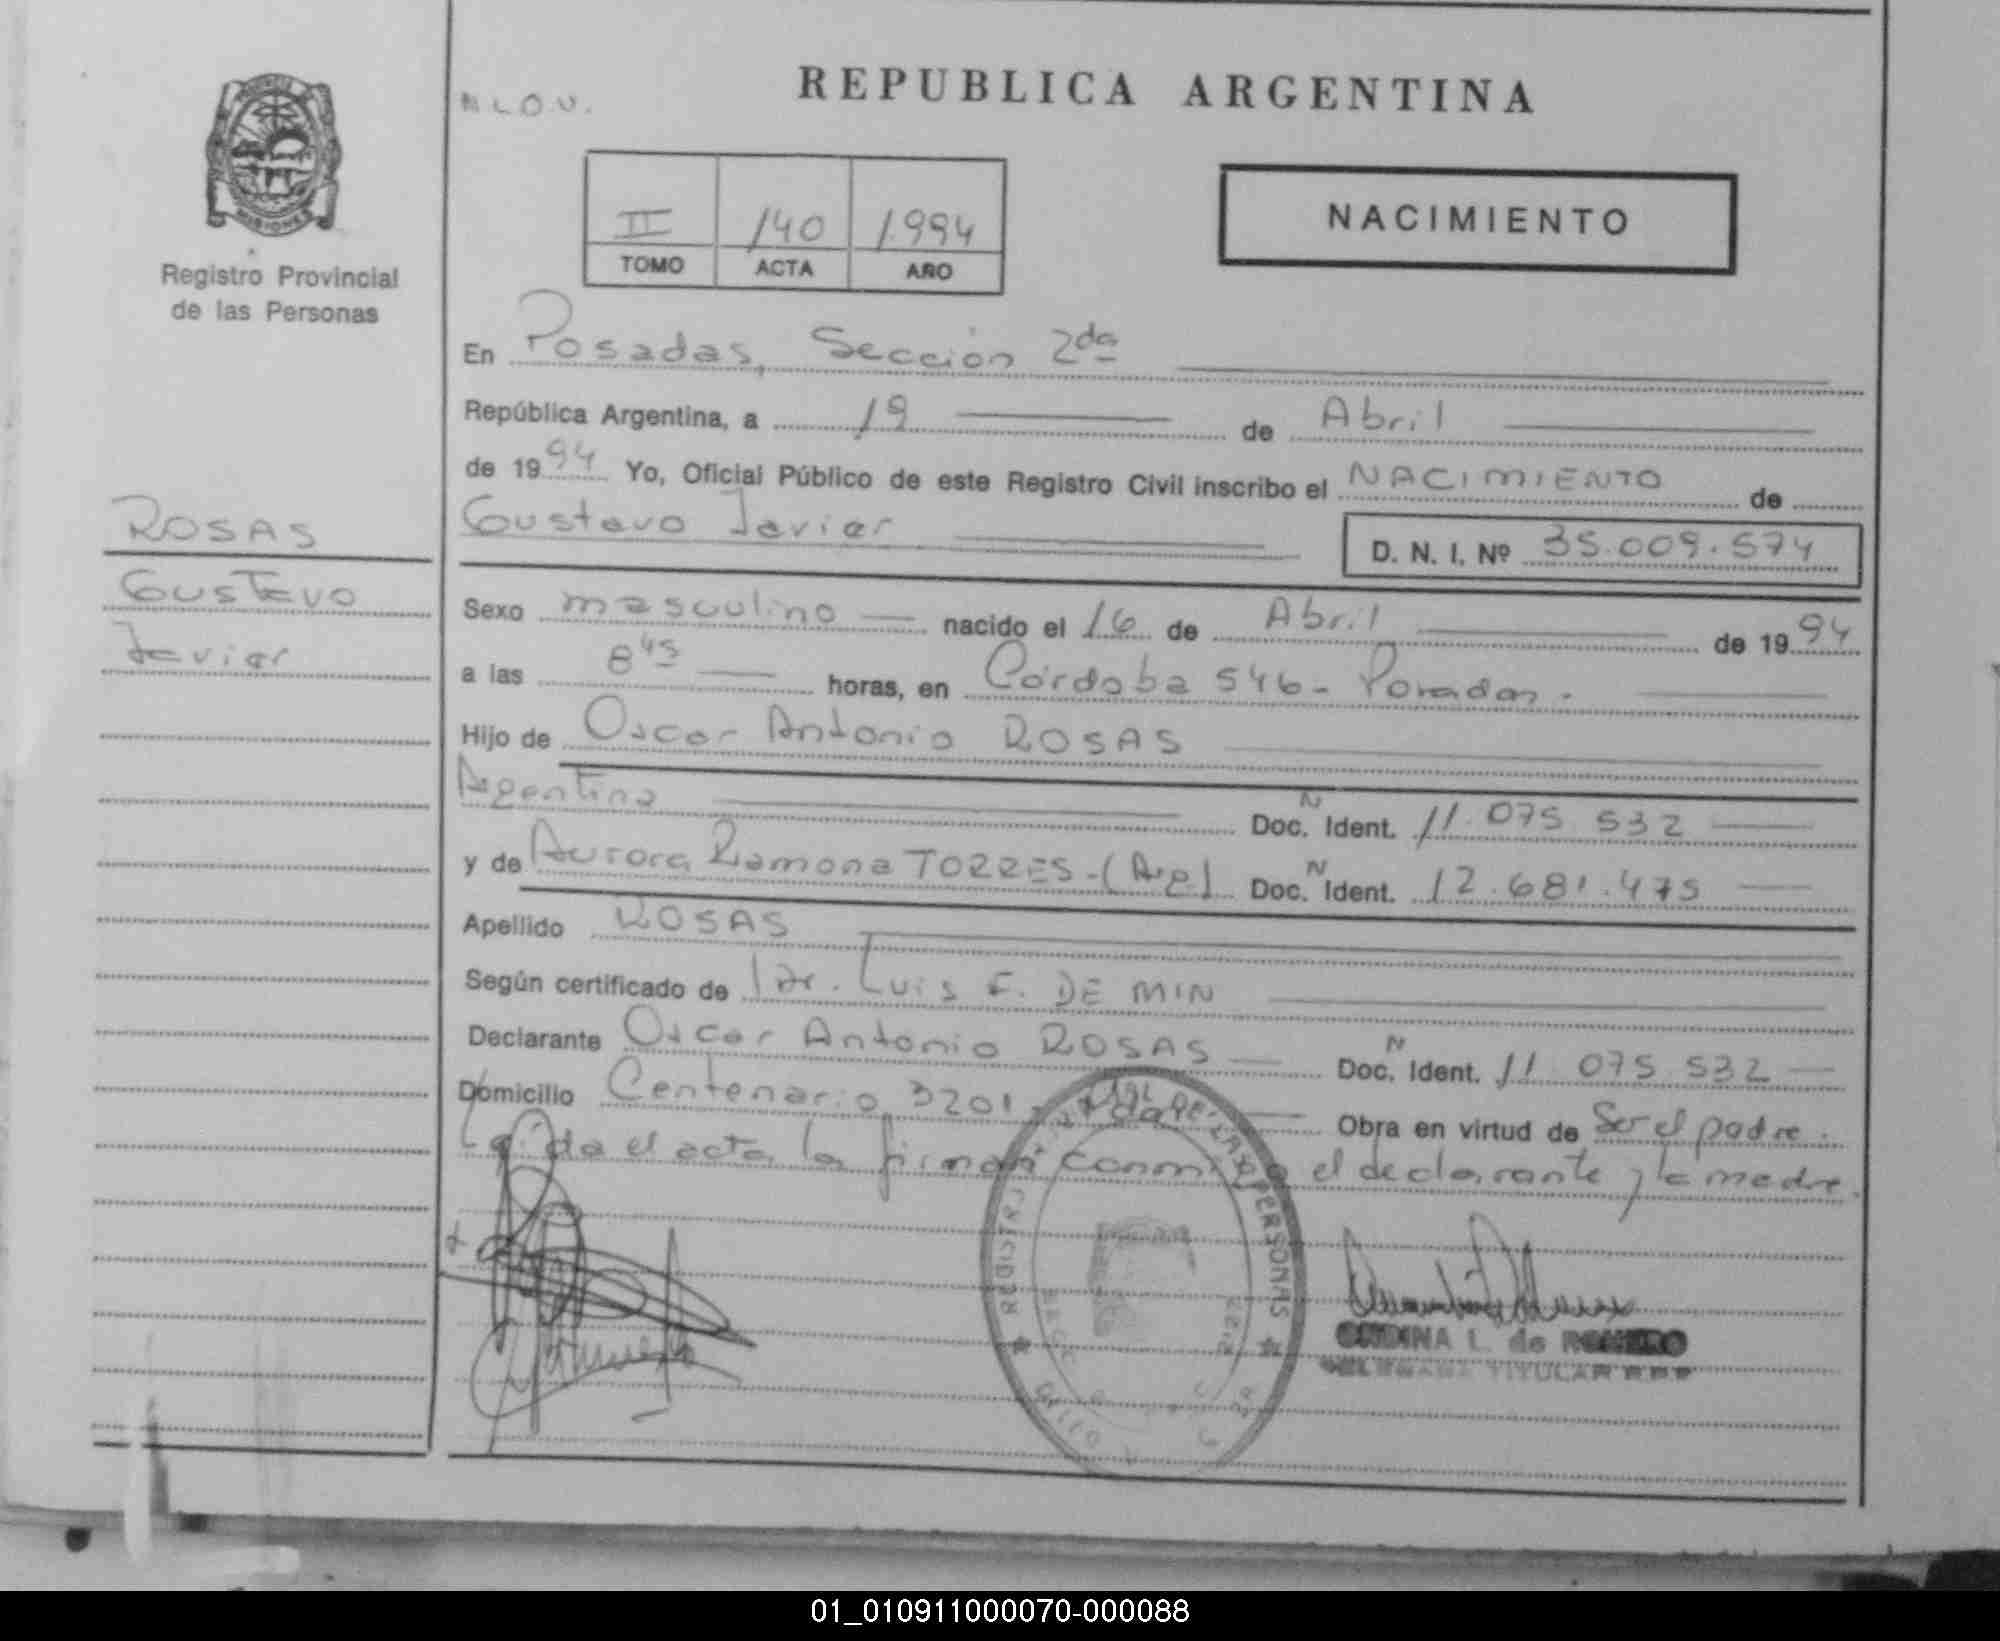 REPUBLICA ARGENTINA
M L O V.
II 140 1.994
TOMO ACTA AÑO
NACIMIENTO
MISIONES
Registro Provincial
de las Personas
En Posadas, Sección 2da
República Argentina, a 19 de Abril
de 1994 Yo, Oficial Público de este Registro Civil inscribo el NACIMIENTO de
Gustavo Javier D. N. I. Nº 35.009.574
ROSAS
Gustavo
Javier
Sexo masculino nacido el 16 de Abril de 1994
a las 8 45 horas, en Córdoba 546 - Posadas.
Hijo de Oscar Antonio ROSAS
Argentina Doc. N Ident. 11.075.532
y de Aurora Ramona TORRES - (Arg) Doc. N Ident. 12.681.475
Apellido ROSAS
Según certificado de Dr. Luis F. DE MIN
Declarante Oscar Antonio ROSAS Doc. N Ident. 11.075.532
Domicilio Centenario 3201 - Pdas Obra en virtud de Ser el padre.
Leída el acta la firman conmigo el declarante y la madre.
REGISTRO PROVINCIAL DE LAS PERSONAS
ONDINA L. de ROMERO
TITULAR R P P
01_010911000070-000088